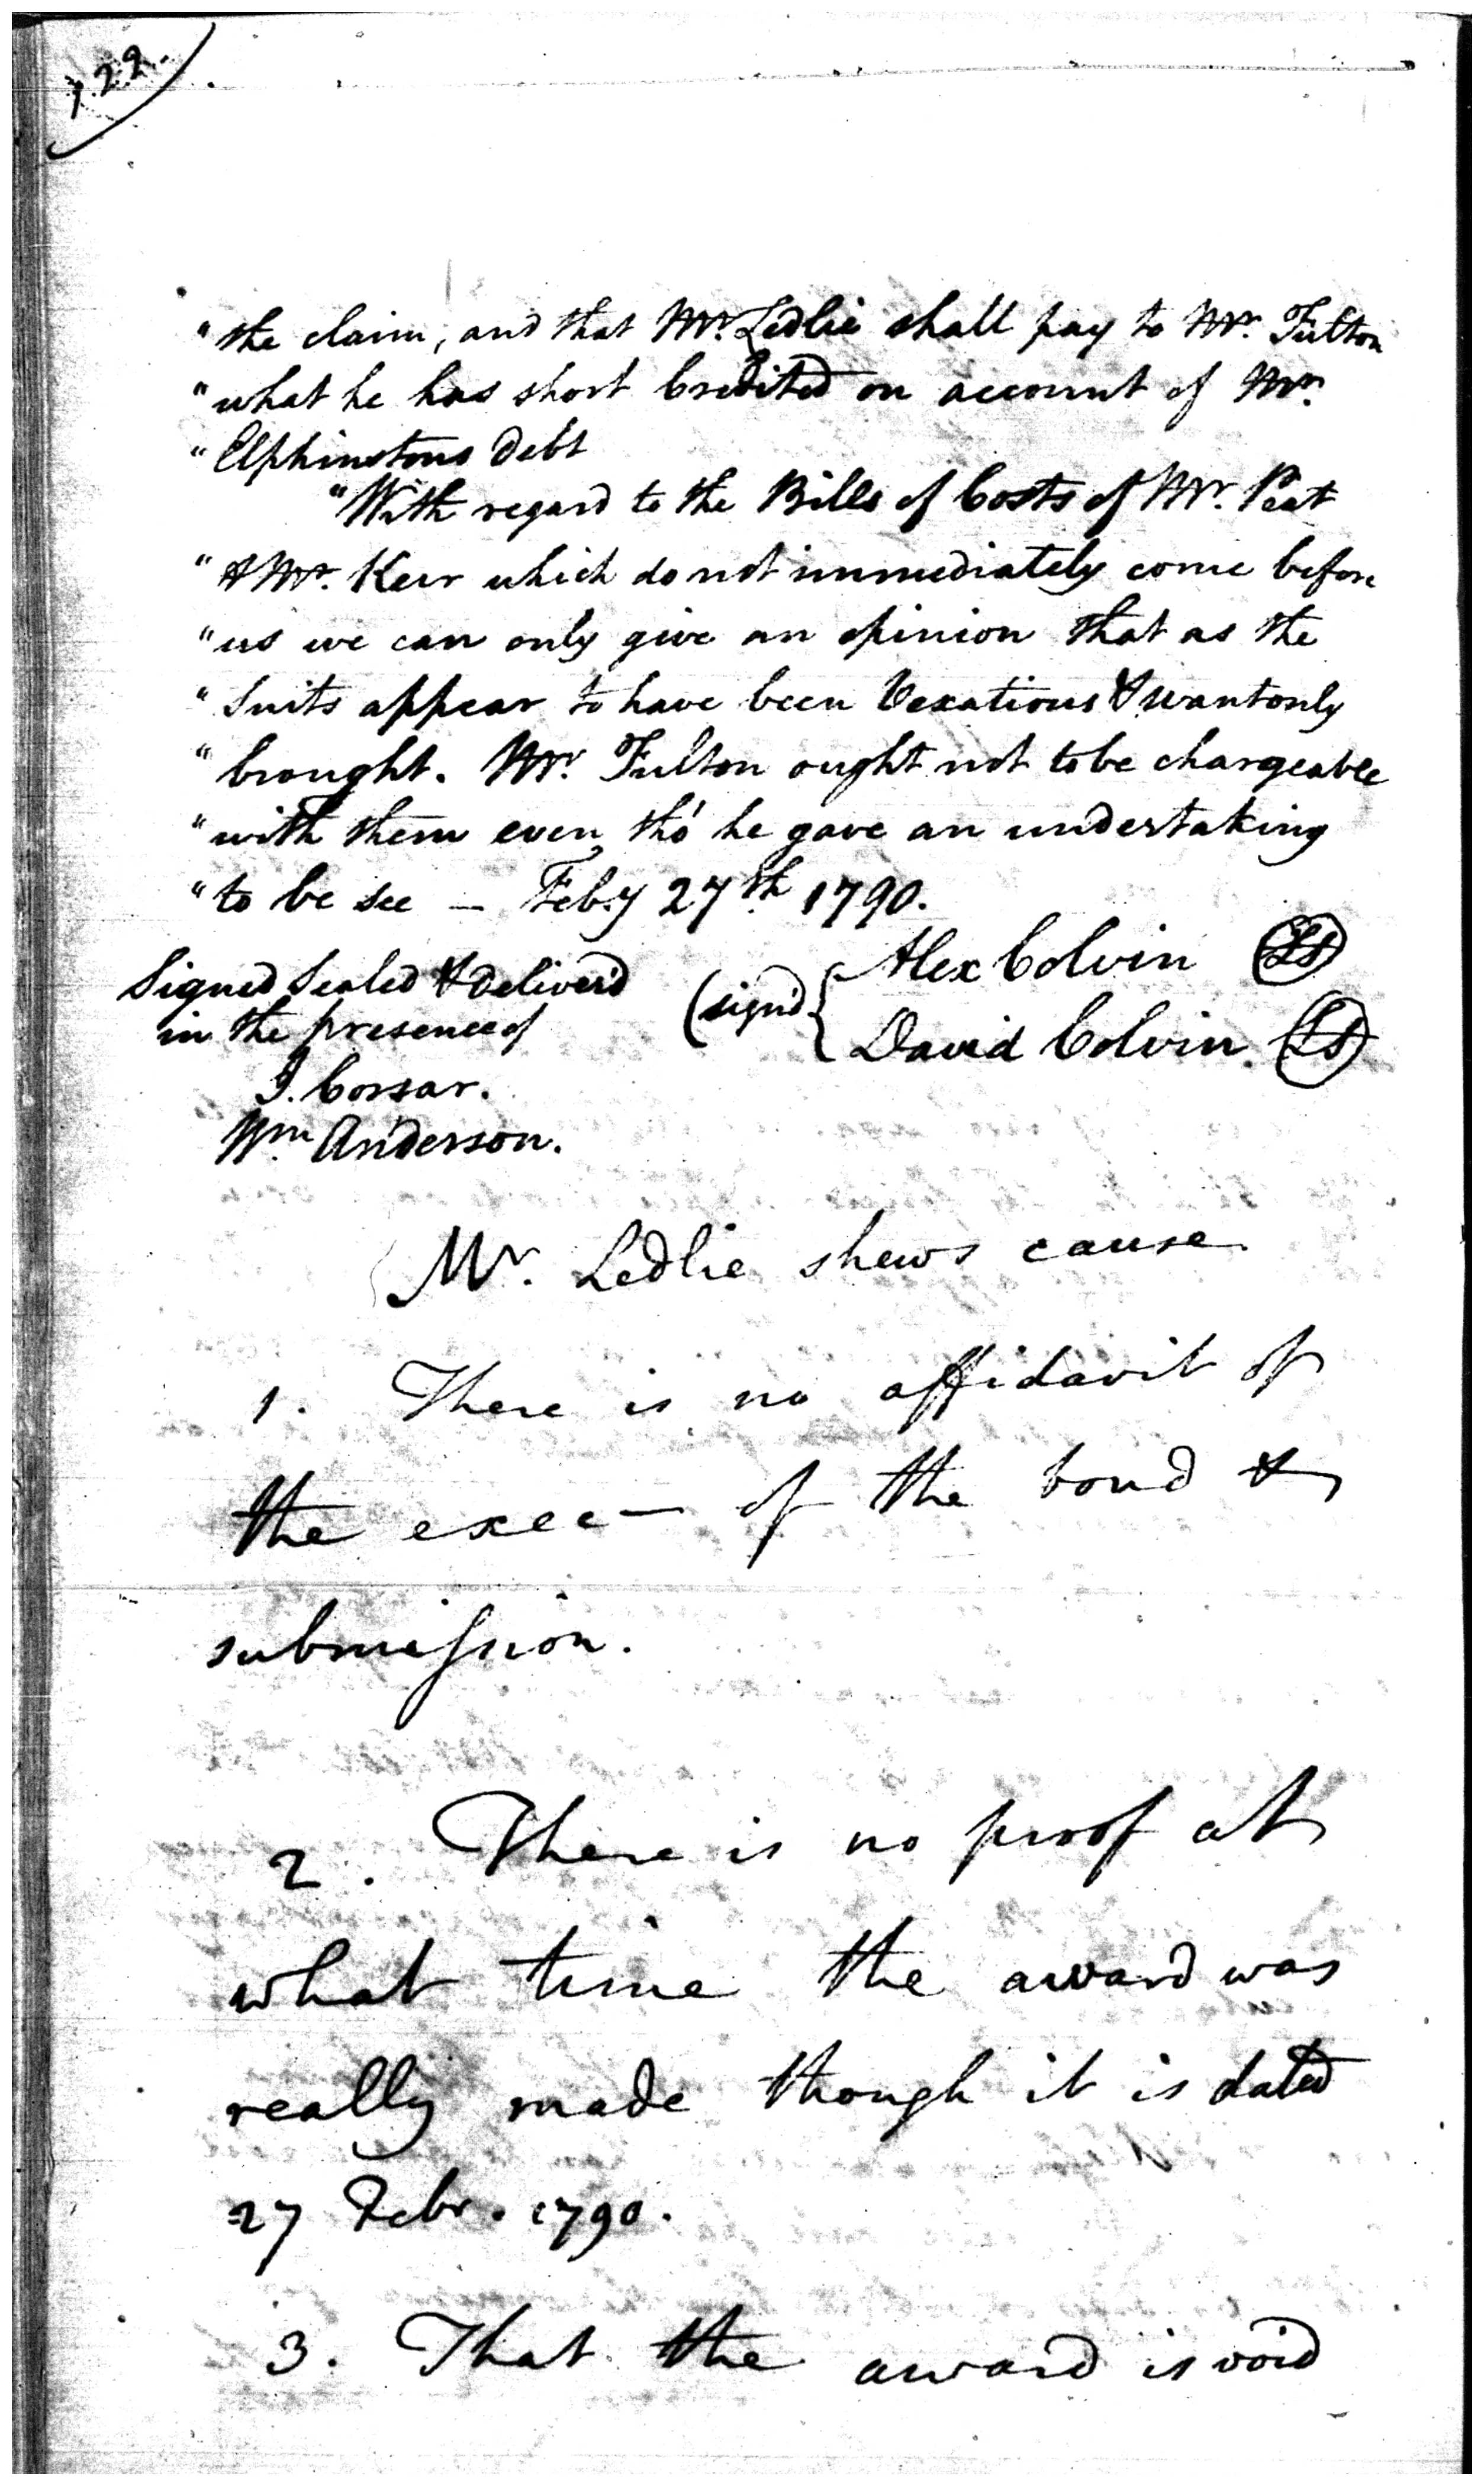 122.
"the claim, and that Mr. Ledlie shall pay to Mr. Fulton
"what he has short Credited on account of Mr.
"Elphinstons debt
"With regard to the Bills of Costs of Mr. Peat
"& Mr. Kerr which do not immediately come before
"us we can only give an opinion that as the
"Suits appear to have been Vexatious & wantonly
"brought. Mr. Fulton ought not to be chargeable
"with them even tho' he gave an undertaking
"to be see — Feby 27th 1790.
Signed Sealed & deliver'd
in the presence of
(sign'd {
Alex Colvin (LS)
David Colvin. (LS)
J. Corsar.
Wm Anderson.
Mr. Ledlie shews cause
1. There is no affidavit of
the exec— of the bond &
submission.
2. There is no proof at
what time the award was
really made though it is dated
27 Febr. 1790.
3. That the award is void